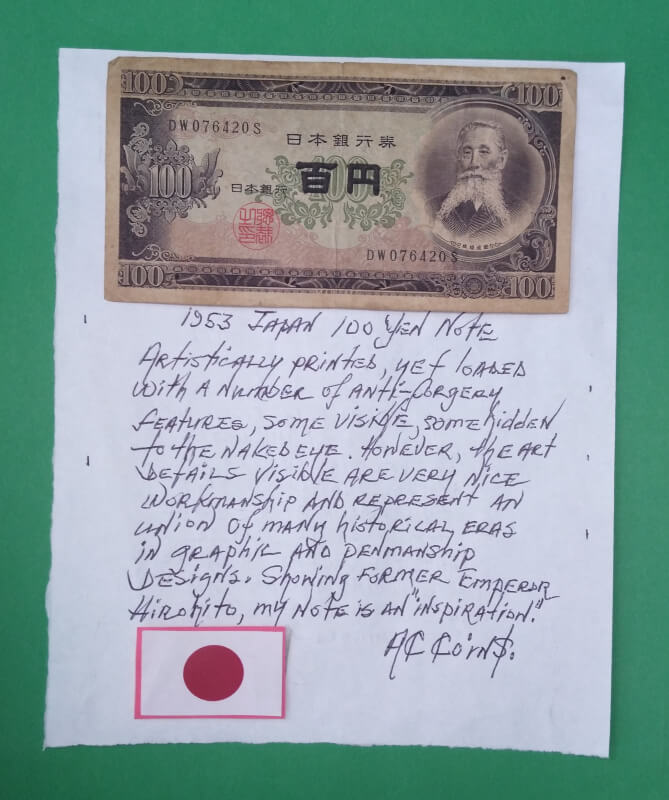 100
100
DW076420S
日本銀行券
100
日本銀行
百円
100
DW076420S
100
100
1953 JAPAN 100 YEN NOTE
ARTISTICALLY PRINTED, YET LOADED
WITH A NUMBER OF ANTI-FORGERY
FEATURES, SOME VISIBLE, SOME HIDDEN
TO THE NAKED EYE. HOWEVER, THE ART
DETAILS VISIBLE ARE VERY NICE
WORKMANSHIP AND REPRESENT AN
UNION OF MANY HISTORICAL ERAS
IN GRAPHIC AND PENMANSHIP
DESIGNS. SHOWING FORMER EMPEROR
HIROHITO, MY NOTE IS AN "INSPIRATION."
AC COIN$.